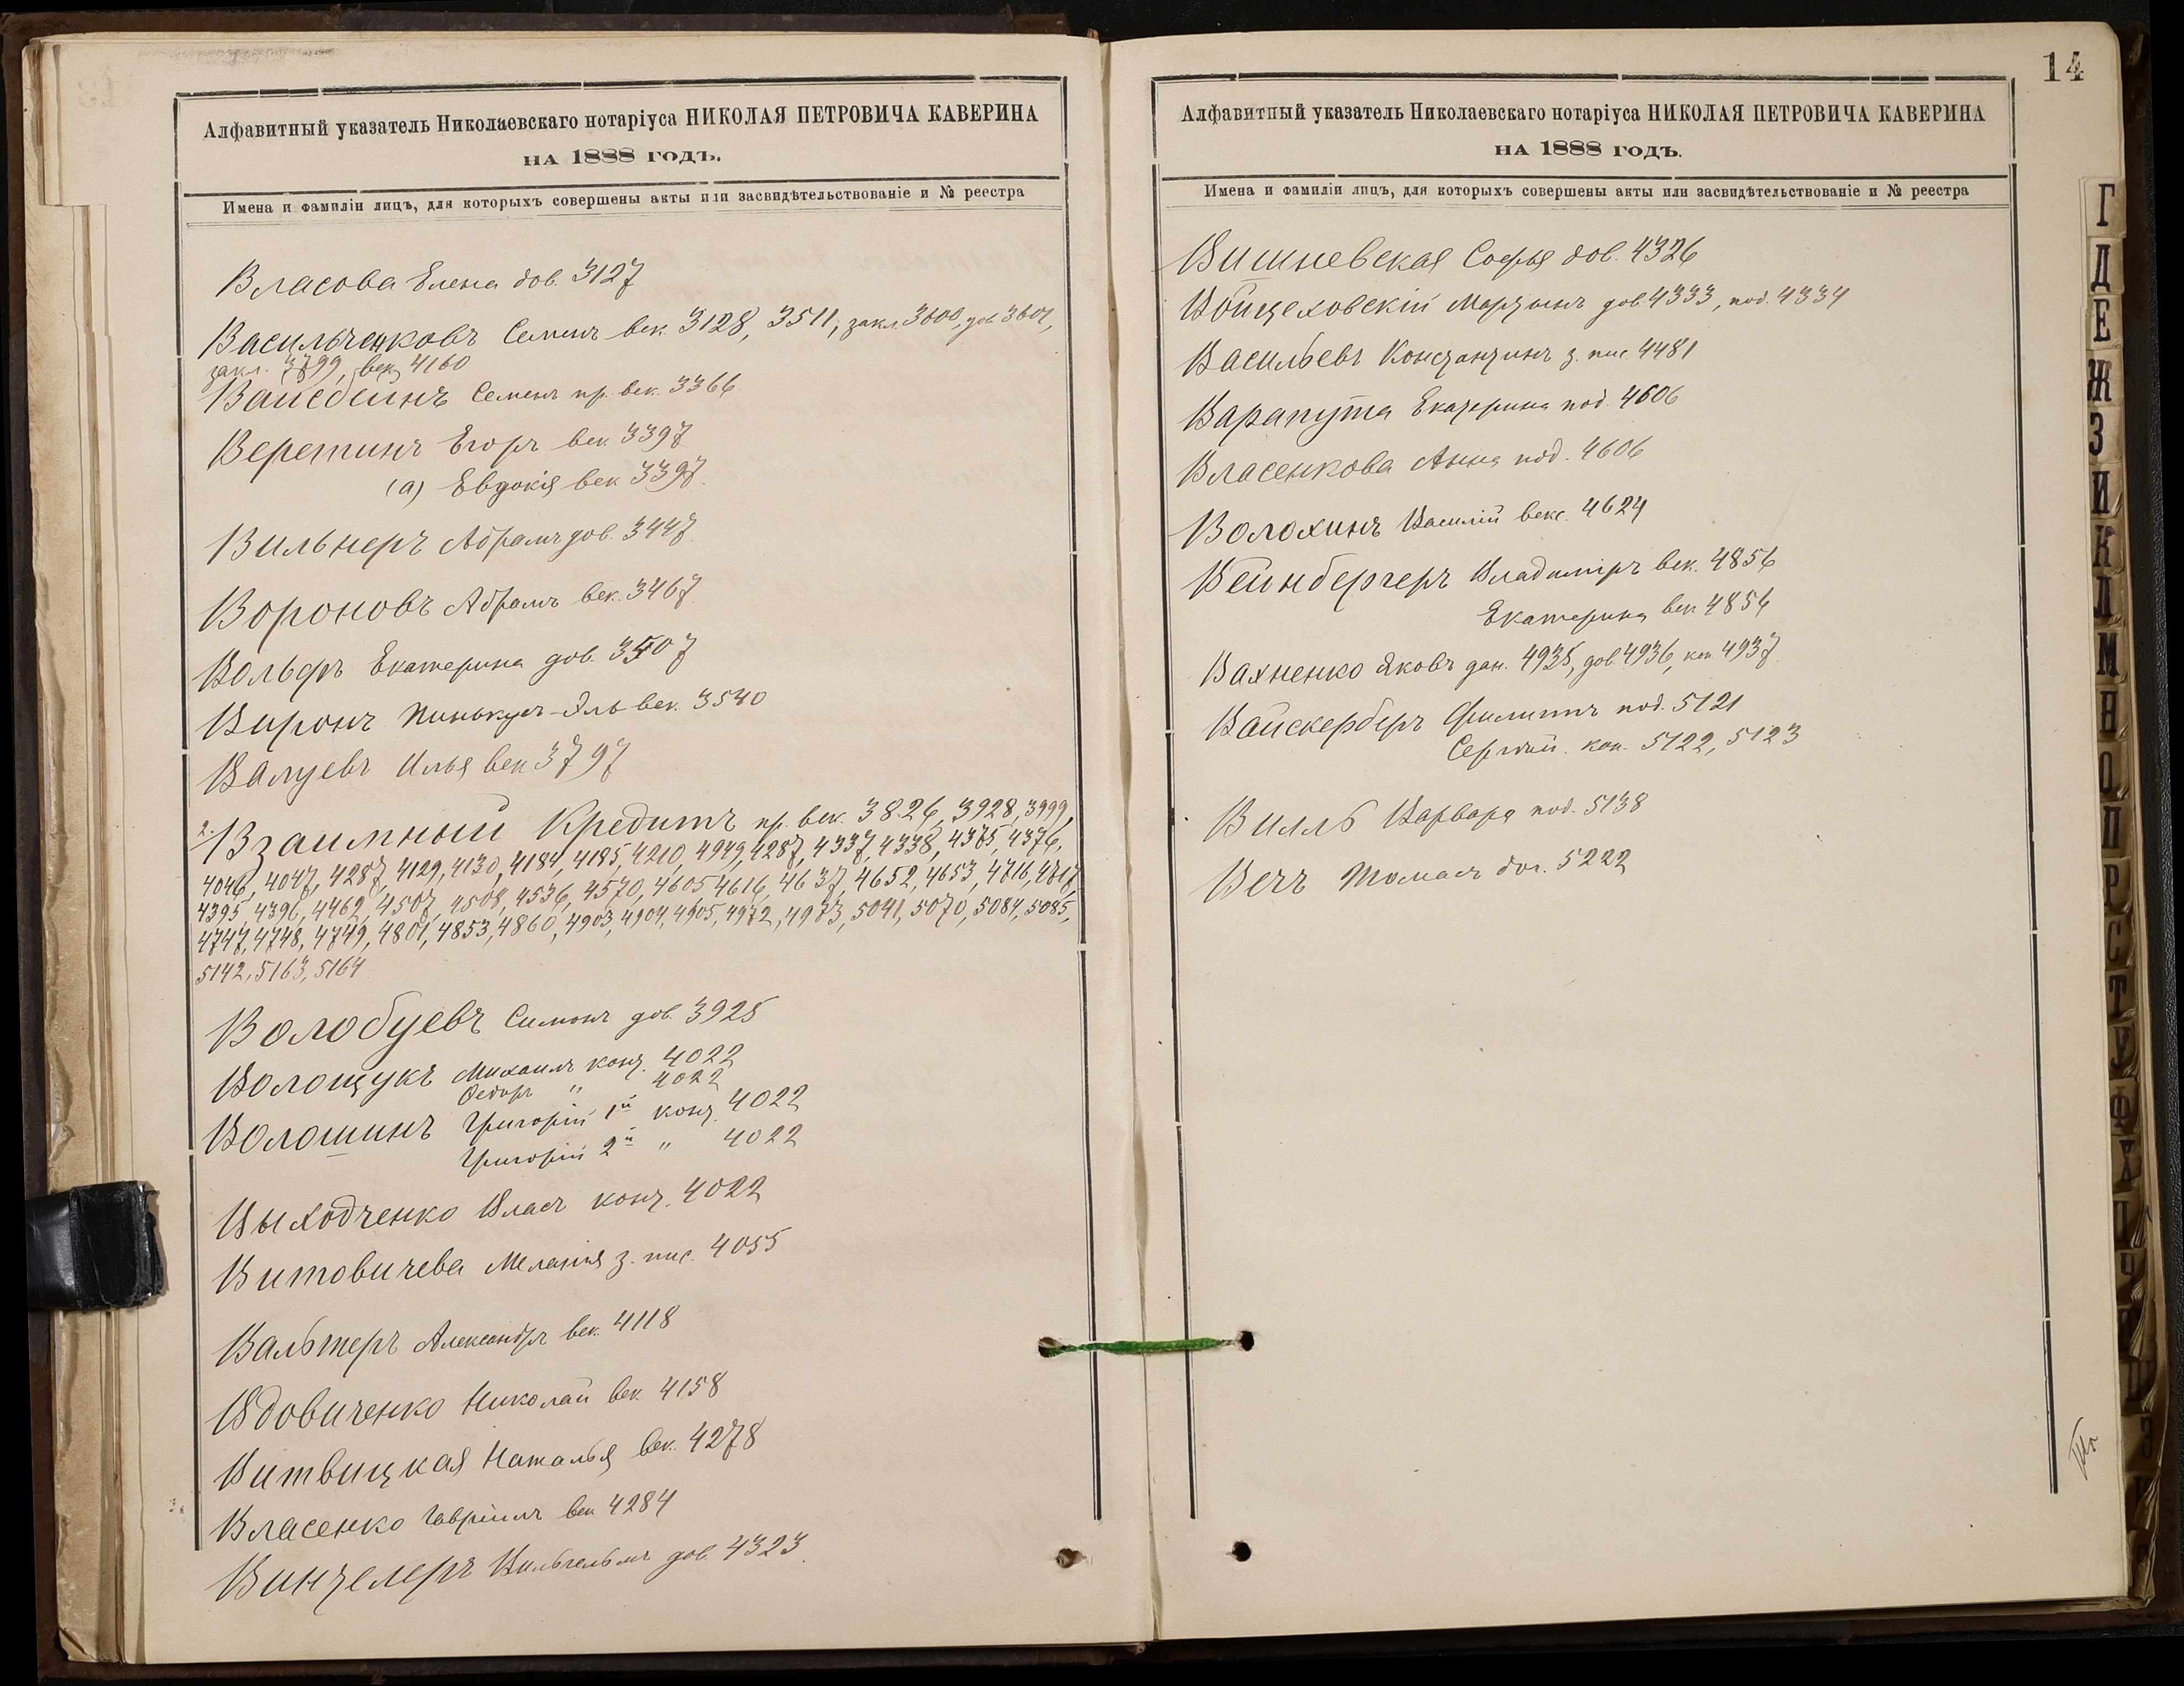 Алфавитный указатель Николаевскаго нотаріуса НИКОЛАЯ ПЕТРОВИЧА КАВЕРИНА
НА 1888 ГОДЪ.
Имена и фамиліи лицъ, для которыхъ совершены акты или засвидѣтельствованіе и № реестра
Власова Елена дов. 3127
Васильченковъ Семенъ век. 3128, 3511, закл. 3600, дов. 3601,
закл. 3799, век. 4160
Вайсбейнъ Семенъ пр. век. 3366
Веретинъ Егоръ век 3397
(а) Евдокія век 3397.
Вильнеръ Абрамъ дов. 3447
Вороновъ Абрамъ век. 3467
Вольфъ Екатерина дов. 3507
Виронъ Пинькусъ-Эль век. 3540
Валуевъ Илья век 3797
2. Взаимный Кредитъ пр. век. 3826, 3928, 3999,
4046, 4047, 4287, 4129, 4130, 4184, 4185, 4210, 4949, 4287, 4337, 4338, 4375, 4376,
4395, 4396, 4462, 4507, 4508, 4536, 4570, 4605, 4616, 4637, 4652, 4653, 4716, 4717,
4747, 4748, 4749, 4801, 4853, 4860, 4903, 4904, 4905, 4972, 4973, 5041, 5070, 5084, 5085,
5142, 5163, 5164
Волобуевъ Симонъ дов. 3925
Волощукъ Михаилъ конт. 4022
Федоръ " 4022
Волошинъ Григорій 1й конт. 4022
Григорій 2й " 4022
Выходченко Власъ конт. 4022
Витовичева Меланія з. пис. 4055
Вальтеръ Александръ век. 4118
Вдовиченко Николай век. 4158
Витвицкая Наталья век. 4278
Власенко Гавріилъ век 4284
Винтелеръ Вильгельмъ дов. 4323.
14
Алфавитный указатель Николаевскаго нотаріуса НИКОЛАЯ ПЕТРОВИЧА КАВЕРИНА
НА 1888 ГОДЪ.
Имена и фамиліи лицъ, для которыхъ совершены акты или засвидѣтельствованіе и № реестра
Вишневская Софья дов. 4326
Войцеховскій Мартынъ дов. 4333, под. 4334
Васильевъ Константинъ з. пис. 4481
Варапута Екатерина под. 4606
Власенкова Анна под. 4606
Волохинъ Василій векс. 4624
Вейнбергеръ Владиміръ век. 4856
Екатерина век 4856
Вахненко Яковъ дан. 4935, дов. 4936, коп. 4937
Вайскерберъ Филиппъ под. 5121
Сергѣй. коп. 5122, 5123
Вилль Варвара под. 5138
Вечъ Томасъ дог. 5222
Г
Д
Е
Ж
З
И
К
Л
М
Н
О
П
Р
С
Т
У
Ф
Х